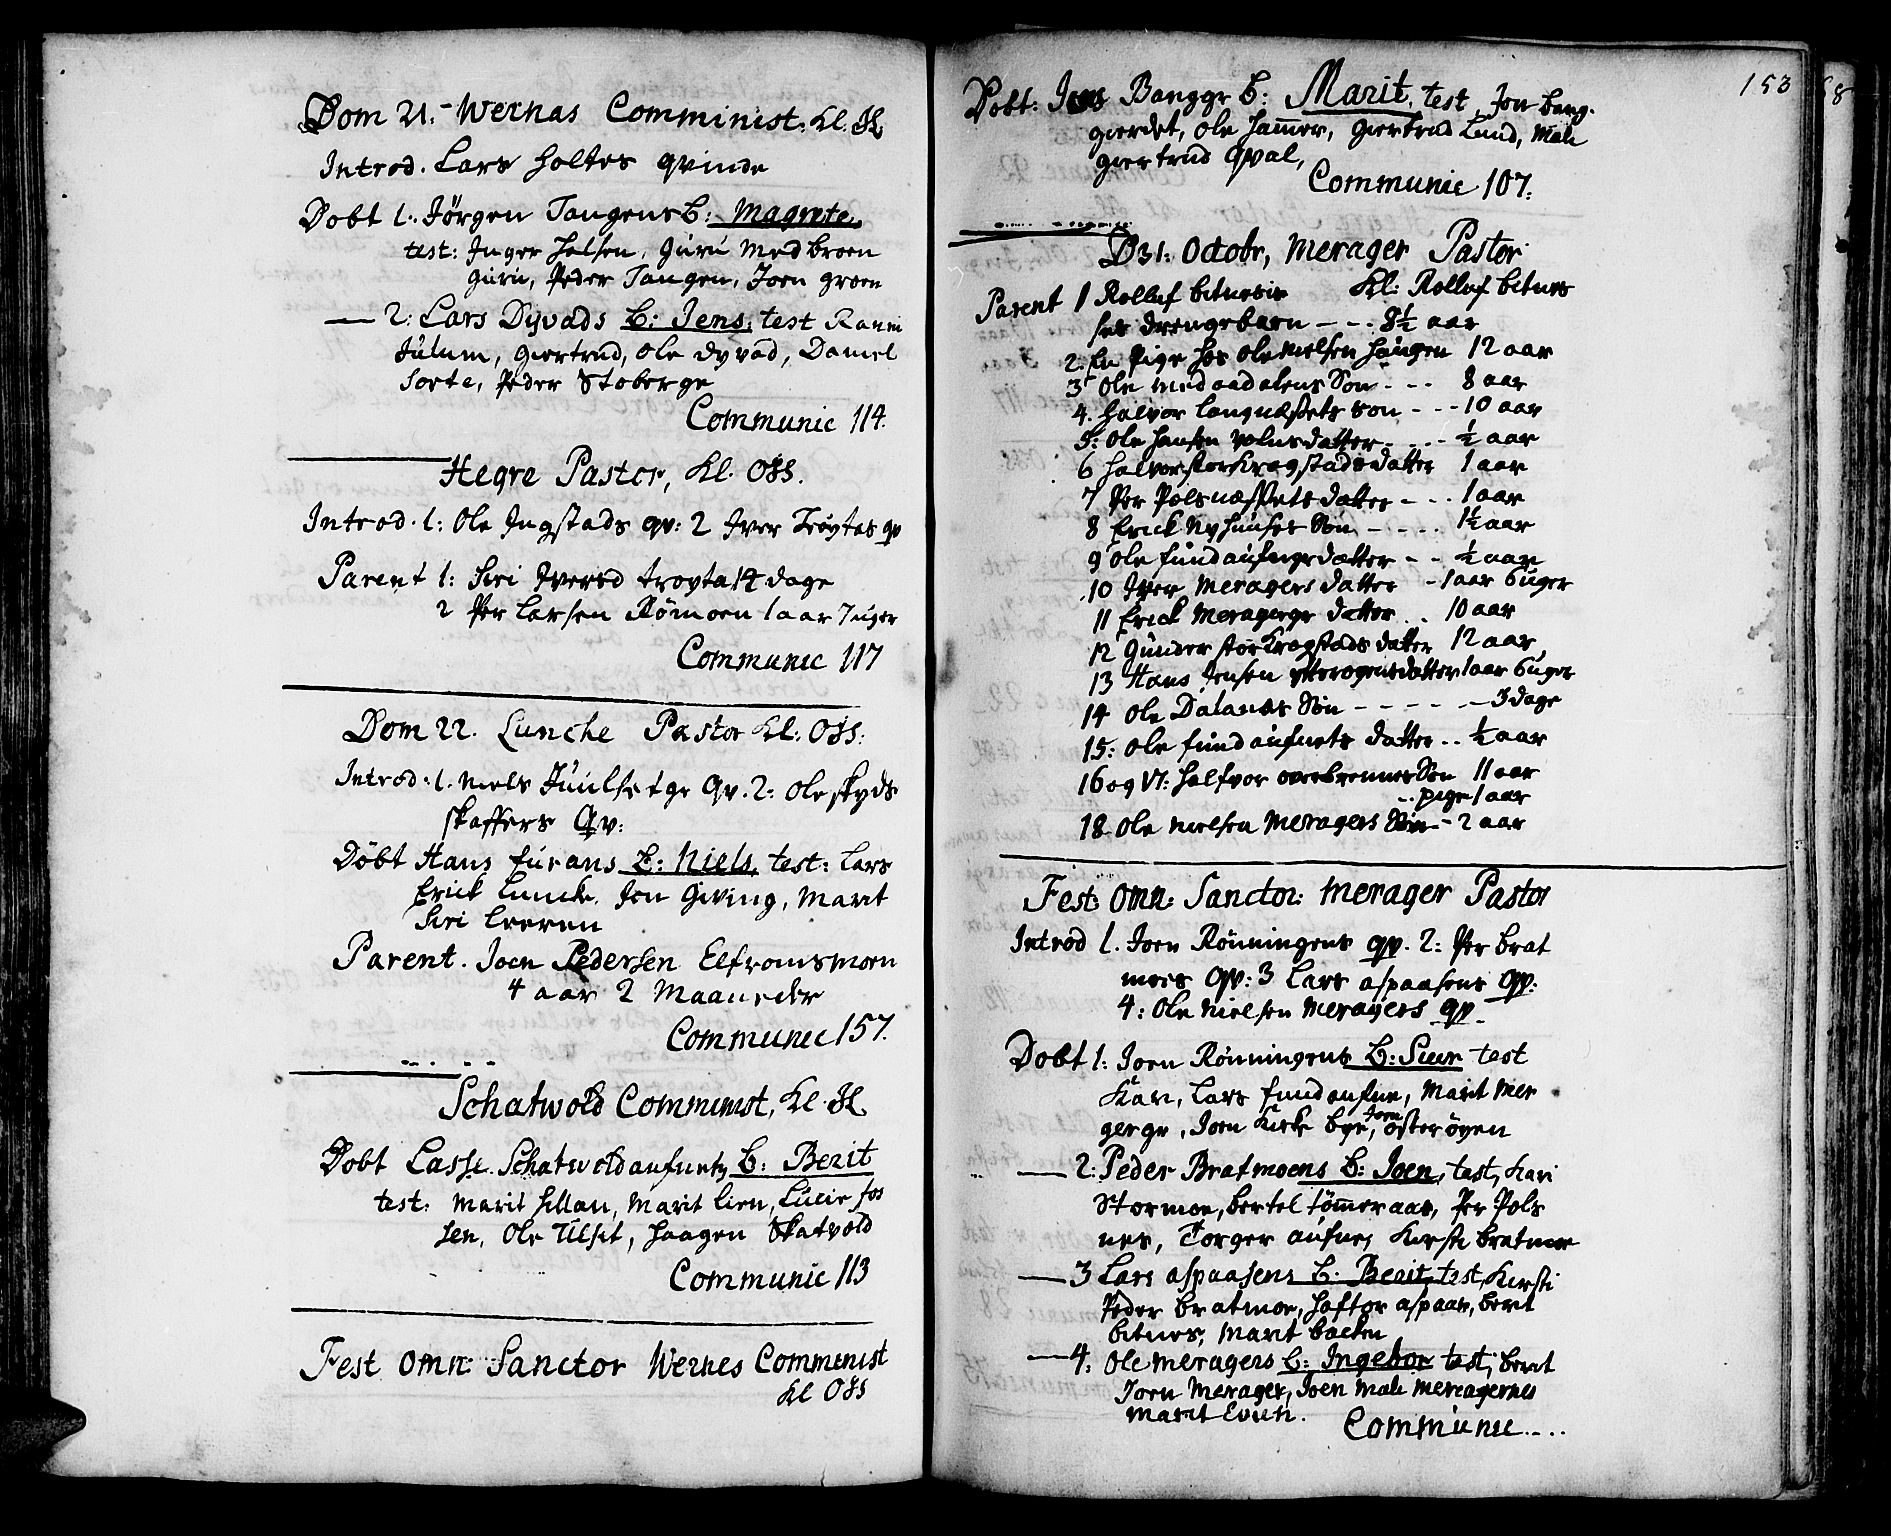 Dom 21. Wernas Comminist: Kl.
Introd. Lars Holtes qvinde
Döbt 1. Jörgen Tangens B: Magrete,
test: Inger Halsen, Guru Medbroen
Guru, Peder Tangen, Joen groen
2: Lars Dyvads B: Jens, test
Julum, Giertrud, Ole dyvad, Daniel
Sorte, Peder Stoberge
Communic 114.
Hegre Pastor, Kl. O
Introd. 1: Ole Ingstads qv: 2 Iver Tröytes qv
Parent 1: Siri Iversd troyta 14 dage
2 Per Larsen Römoen 1 aar 7 uger
Communic 117
Dom 22. Luncke Pastor Kl:
Introd: 1. Niels qv. 2: Ole skyds
skaffers Qv:
Döbt Hans furans B: Niels, test: Lars
Erick Lunck, Jon Giving, Marit
Siri Leeren
Parent. Joen Pedersen Elframsmoen
4 aar 2 Maaneder
Communic 157.
Schatwold Comminist, Kl.
Döbt Lasse Schatwoldaufnetz B: Berit
test: Marit Sillan, Marit Lien, Lucie fos
sen, Ole Ulsit, Haagen Skatvold
Communic 113
Fest omn: Sanctor Wernes Comminist
Kl
153
Döbt: Jens Bangge B: Marit, test Jon bang-
gierdet, Ole Hammer, Giertrud Lund, Mali
Giertrud qval,
Communic 107.
D 31: Octobr, Merager Pastor
Parent 1 Kl: Rolluf bitnes
drengebarn - - - 8½ aar
2: En Pige hos Ole Nielsen Haugen 12 aar
3 Ole Medaadalens Son - - - 8 aar
4. Halvor Langnæssets son - - - 10 aar
5: Ole Hansen volusdatter - - - ½ aar
6 Halvor storkragstads datter 1 aar
7 Per Polsnæssets datter - - - 1 aar
8 Erick Nyhuuses Sön - - - - 1½ aar
9 Ole fundaufnes datter - - ½ aar
10 Iver Meragers datter - 1 aar 6 uger
11 Erick Meragers datter . . 10 aar
12 Gunder storkragstads datter 12 aar
13 Hans Jensen datter 1 aar 6 uger
14 Ole Dalands Sön - - - - - 3 dage
15: Ole fundaufnets datter . . ½ aar
16 og 17: Halfvor Son 11 aar
pige 1 aar
18 Ole Nielsen Meragers Sön - 2 aar
Fest: omn: Sanctor: Merager Pastor
Introd 1. Joen Rönningens qv. 2: Per brat
moes Qv: 3 Lars aspaasens Qv:
4: Ole Nielsen Meragers qv
Döbt 1: Joen Rönningens B: test
Kari, Lars fundaufne, Marit Mer
gerge, Joen Kirke bye, Joen österöyen
2: Peder Bratmoens B: Joen, test, Kari
Stormoe, bertel tömmeraas, Per Pols
nes, Torger aufne, Kirsti bratmoe
3 Lars aspaasens B: Berit, test, Kirsti
Peder bratmoe, Haftor aspaas, berit
bitnes, Marit backen
4: Ole Meragers B: Ingebor test, berit
Joen Merager, Joen Mali Meragernes
Marit
Communic . . . .